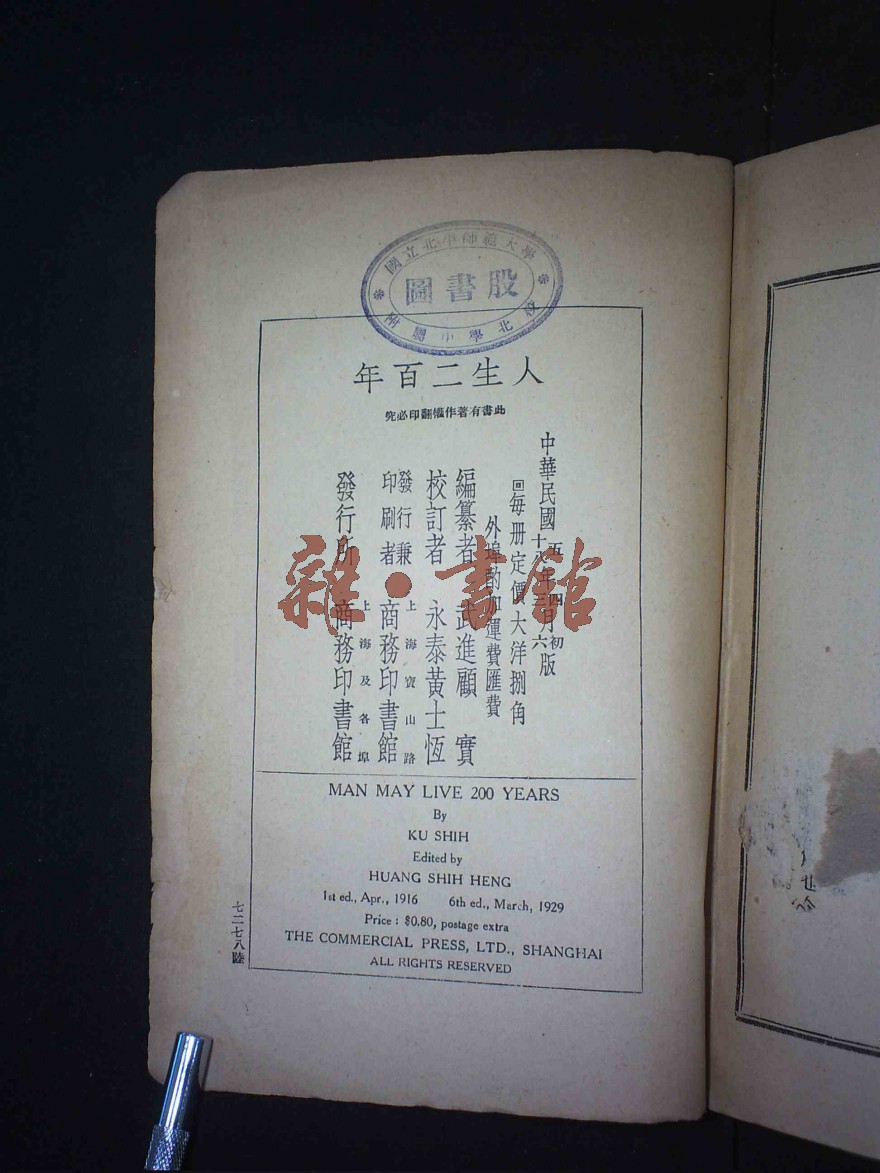 國立北平師範大學
圖書股
附屬中學北校
人生二百年
此書有著作權翻印必究
中華民國五年四月初版
十八年三月六版
回每册定價大洋捌角
外埠酌加運費匯費
編纂者 武進顧 實
校訂者 永泰黃士恆
發行兼印刷者 上海寶山路 商務印書館
發行所 上海及各埠 商務印書館
雜·書館
MAN MAY LIVE 200 YEARS
By
KU SHIH
Edited by
HUANG SHIH HENG
1st ed., Apr., 1916 6th ed., March, 1929
Price : $0.80, postage extra
THE COMMERCIAL PRESS, LTD., SHANGHAI
ALL RIGHTS RESERVED
七二七八陸